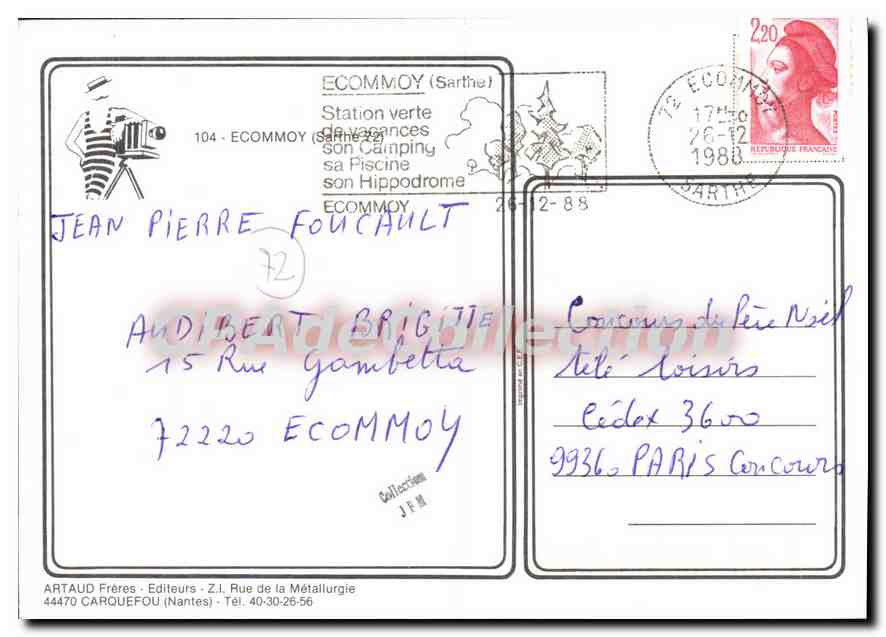 2,20
POSTES
REPUBLIQUE FRANÇAISE
72 ECOMMOY
17H30
26-12
1988
SARTHE
ECOMMOY (Sarthe)
Station verte
de vacances
son Camping
sa Piscine
son Hippodrome
ECOMMOY
26-12-88
104 - ECOMMOY (Sarthe 72)
JEAN PIERRE FOUCAULT
72
AUDIBERT BRIGITTE
15 Rue Gambetta
72220 ECOMMOY
Collection
JFM
CPAdeCollection.com
Imprimé en C.E.E.
Concours du Père Noël
télé loisirs
Cédex 3600
99360 PARIS Concours
ARTAUD Frères - Editeurs - Z.I. Rue de la Métallurgie
44470 CARQUEFOU (Nantes) - Tél. 40-30-26-56